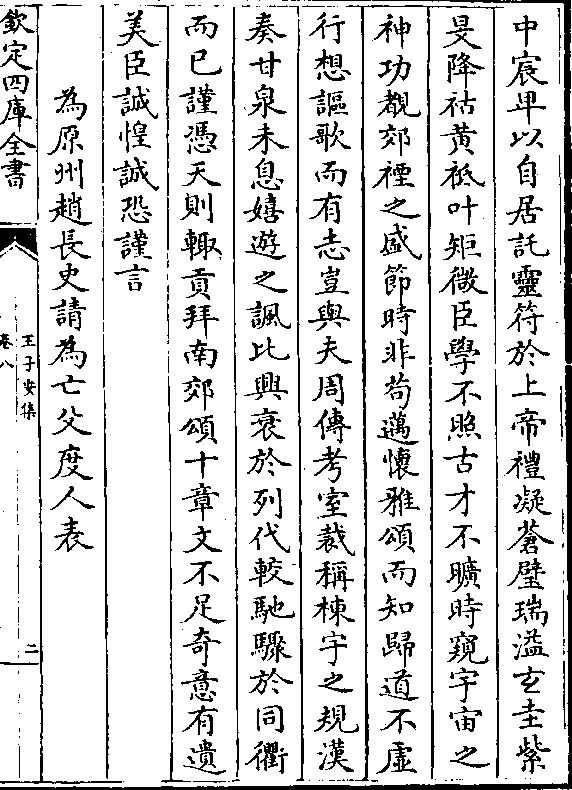 中宸卑以自居託靈符於上帝禮凝蒼璧瑞溢玄圭紫
旻降祜黄祗叶矩微臣學不照古才不曠時窺宇宙之
神功覩郊禋之盛節時非苟邁懐雅頌而知歸道不虚
行想謳歌而有志豈與夫周傳考室裁稱棟宇之規漢
奏甘泉未息嬉遊之諷比興衰於列代較馳驟於同衢
而已謹憑天則輙貢拜南郊頌十章文不足奇意有遺
美臣誠惶誠恐謹言
為原州趙長史請為亡父度人表
欽定四庫全書
王子安集
卷八
二